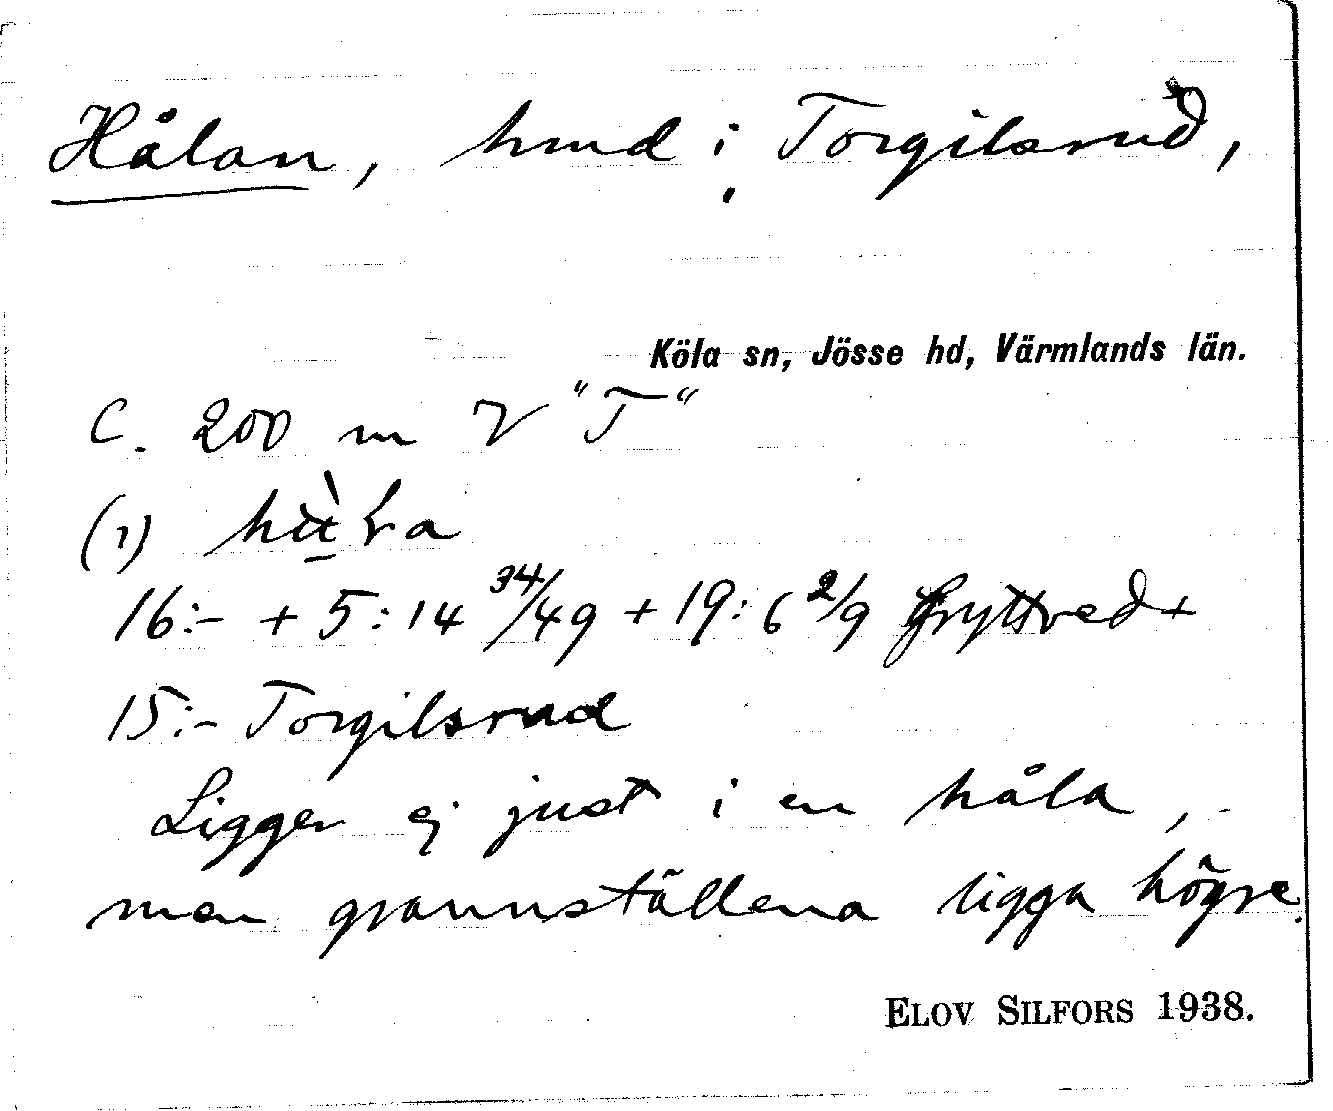 Hålan, hmd i Torgilsrud,
Köla sn, Jösse hd, Värmlands län.
C. 200 m V "T"
(1)
16:- + 5:14 34/49 + 19:6 2/9 Gryttved +
15:- Torgilsrud
Ligger ej just i en håla,
men grannställena ligga högre.
ELOV SILFORS 1938.